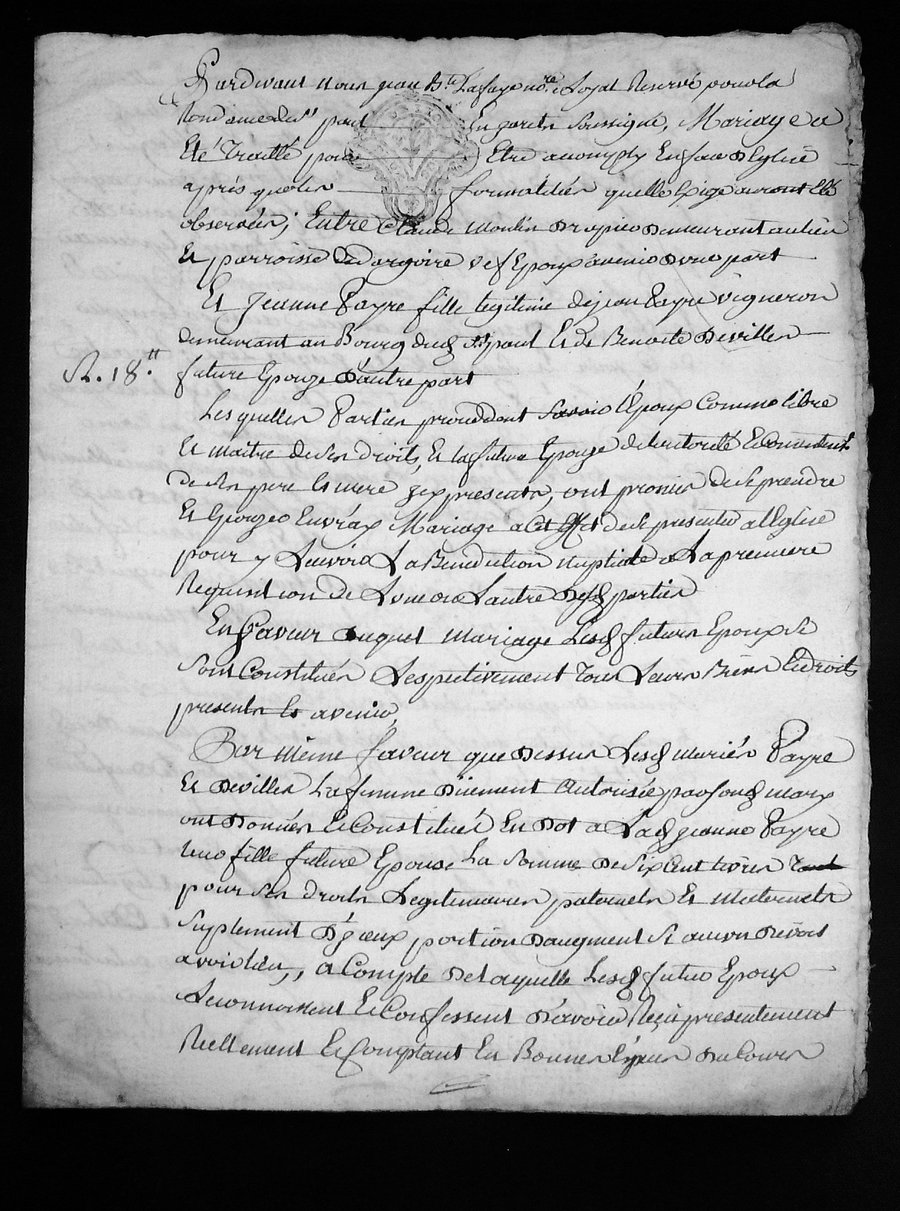 Pardevant nous jean Bte Laffay nore Royal Reservé pour la
Rendance de St paul En paroles Soussigné, Mariage a
Eté Traitté pour Etre accomply En face D'Eglise
aprés que les formalitées quelle Exige auront Eté
observées; Entre Claude Moulin Drapier Demeurant au lieu
Et parroisse De dargoire vef Epoux avenir D'une part
Et Jeanne Payre fille legitime de jean Payre vigneron
demeurant au Bourg dud St paul Et de Benoite Devilles
R. 18tt.
future Epouze D'autre part
Les quelles Parties procedent Savoir L'Epoux Comme libre
Et maitre de Ses Droits, Et la future Epouze de l'autorité & Consentemt
de Ses pere Et mere presents, ont promis de Se prendre
Et Epouzer En vray Mariage a Cet Effet de Se presenter a l'Eglise
pour y Recevoir La Benediction nuptiale a La premiere
Requisition de L'une ou L'autre Desd parties
En faveur Duquel mariage Lesd futurs Epoux Se
Sont Constitués Respectivement Tous Leurs Biens & droits
presents Et avenir,
Par même faveur que Dessus Lesd mariés Payre
Et Devilles La femme Duement Autorisée par Sond mary
ont Donnés & Constitués En Dot a Lad jeanne Payre
Leur fille future Epouse La Somme De Six Cent livres
pour Ses droits Legitimaires paternels Et Maternels
Suplement D'yceux portion D'augment Si aucun Devoit
avoir lieu, a Compte De laquelle Lesd futur Epoux
Reconnoissent & Confessent D'avoir Reçu presentement
Reellement & Comptant En Bonnes Especes Du Cours